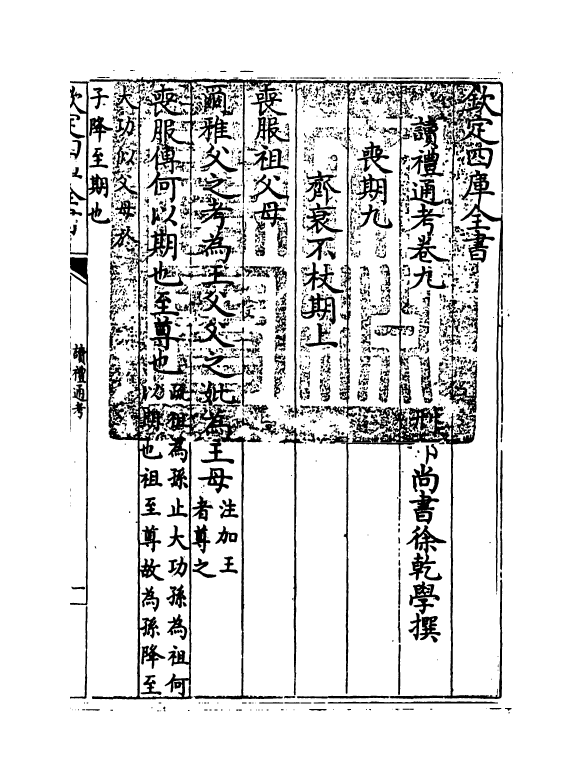 欽定四庫全書
讀禮通考卷九
尚書徐乾學撰
喪期九
齊衰不杖期上
喪服祖父母
爾雅父之考為王父父之妣為王母
注加王
者尊之
喪服傳何以期也至尊也
疏祖為孫止大功孫為祖何
以期也祖至尊故為孫降至
大功似父母於
子降至期也
欽定四庫全書
讀禮通考